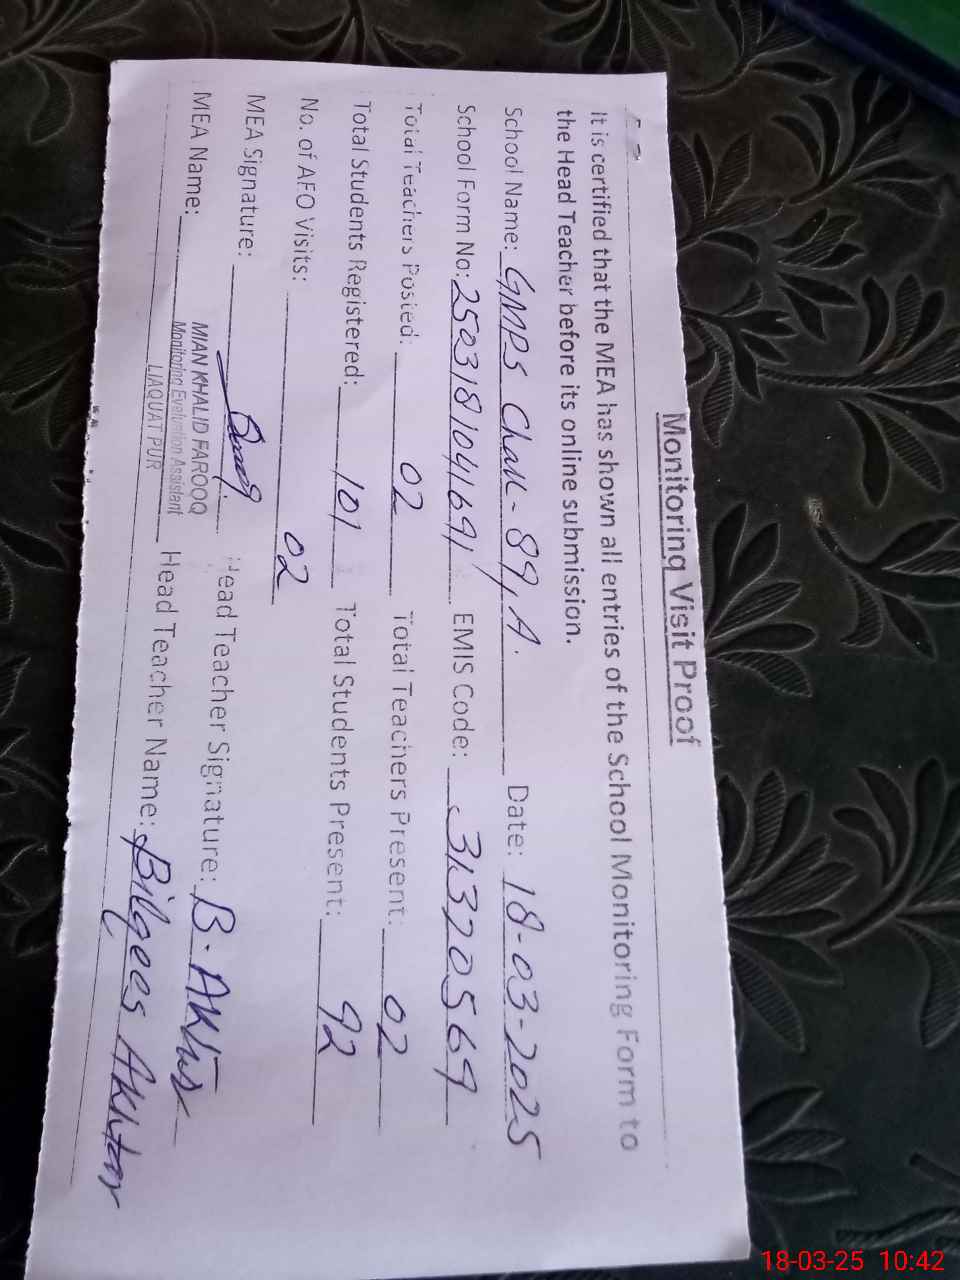 Monitoring Visit Proof
It is certified that the MEA has shown all entries of the School Monitoring Form to
the Head Teacher before its online submission.
School Name: GMPS Chak-89, A. Date: 18-03-2025
School Form No: 2503181041691 EMIS Code: 31320569
Total Teachers Posted: 02 Total Teachers Present: 02
Total Students Registered: 101 Total Students Present: 92
No. of AFO Visits: 02
MEA Signature: Head Teacher Signature: B. Akhtar
MEA Name: MIAN KHALID FAROOQ Head Teacher Name: Bilqees Akhtar
Monitoring Evaluation Assistant
LIAQUAT PUR
18-03-25 10:42